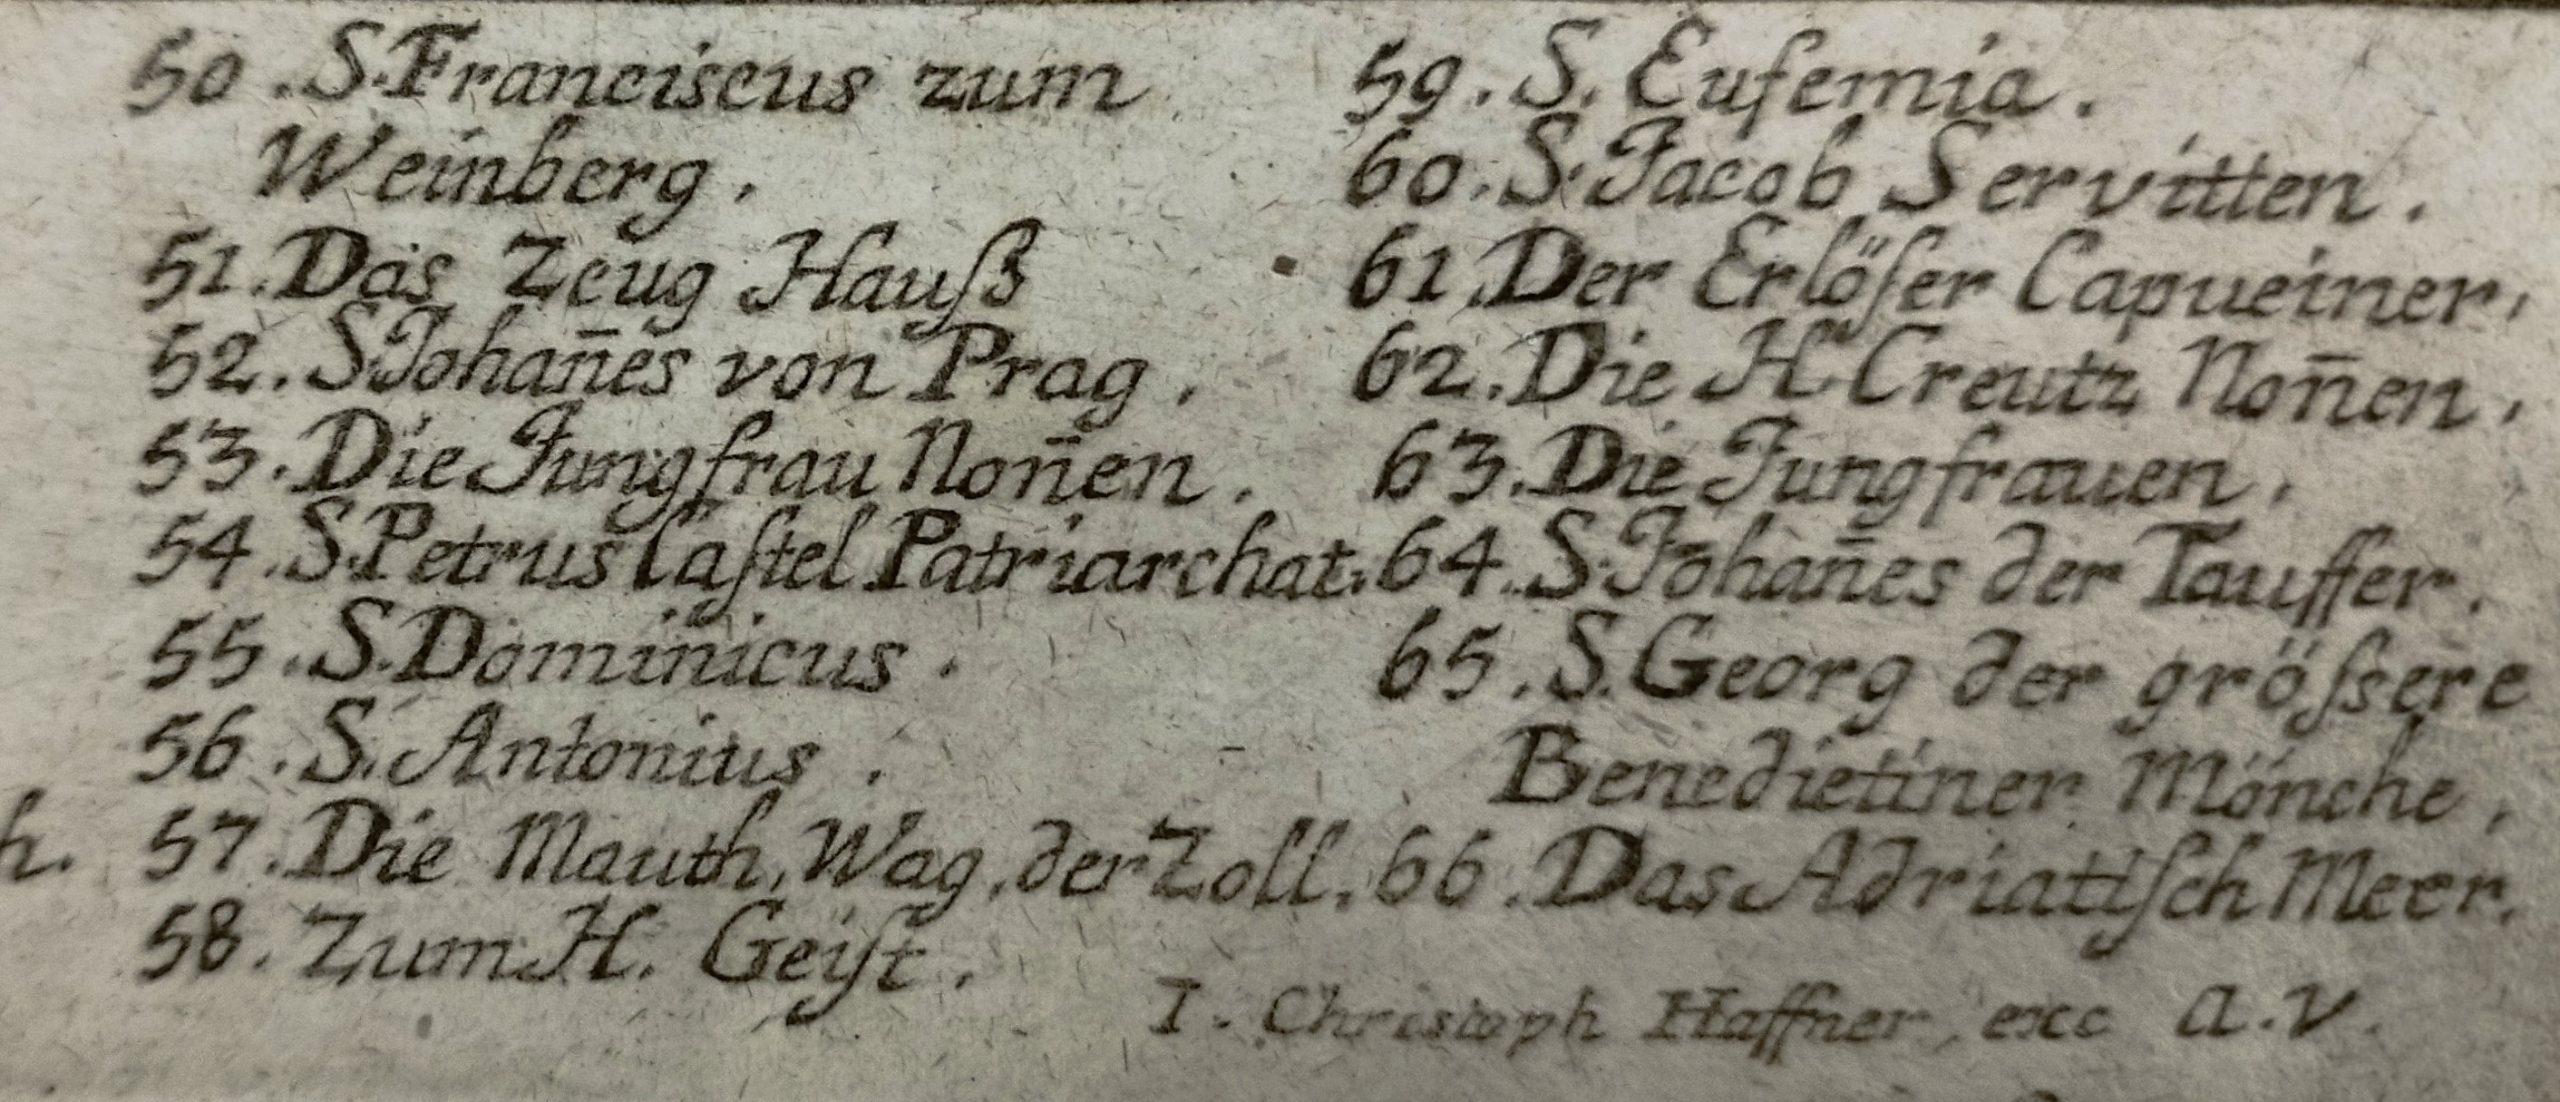 50. S. Franciscus zum
Weinberg.
51. Das Zeug Hauß
52. S Johan̄es von Prag.
53. Die Jungfrau Non̄en.
54. S. Petrus Caſtel Patriarchat.
55. S. Dominicus.
56. S. Antonius.
h. 57. Die Mauth, Wag, der Zoll.
58. Zum H. Geiſt.
59. S. Eufemia.
60. S. Jacob Servitten.
61. Der Erlöſer Capueiner,
62. Die H. Creutz Non̄en,
63. Die Jungfrauen.
64. S. Johan̄es der Tauffer.
65. S. Georg der gröſsere
Benedietiner Mönche,
66. Das Adriatiſch Meer.
I. Christoph Haffner, exc a.v.